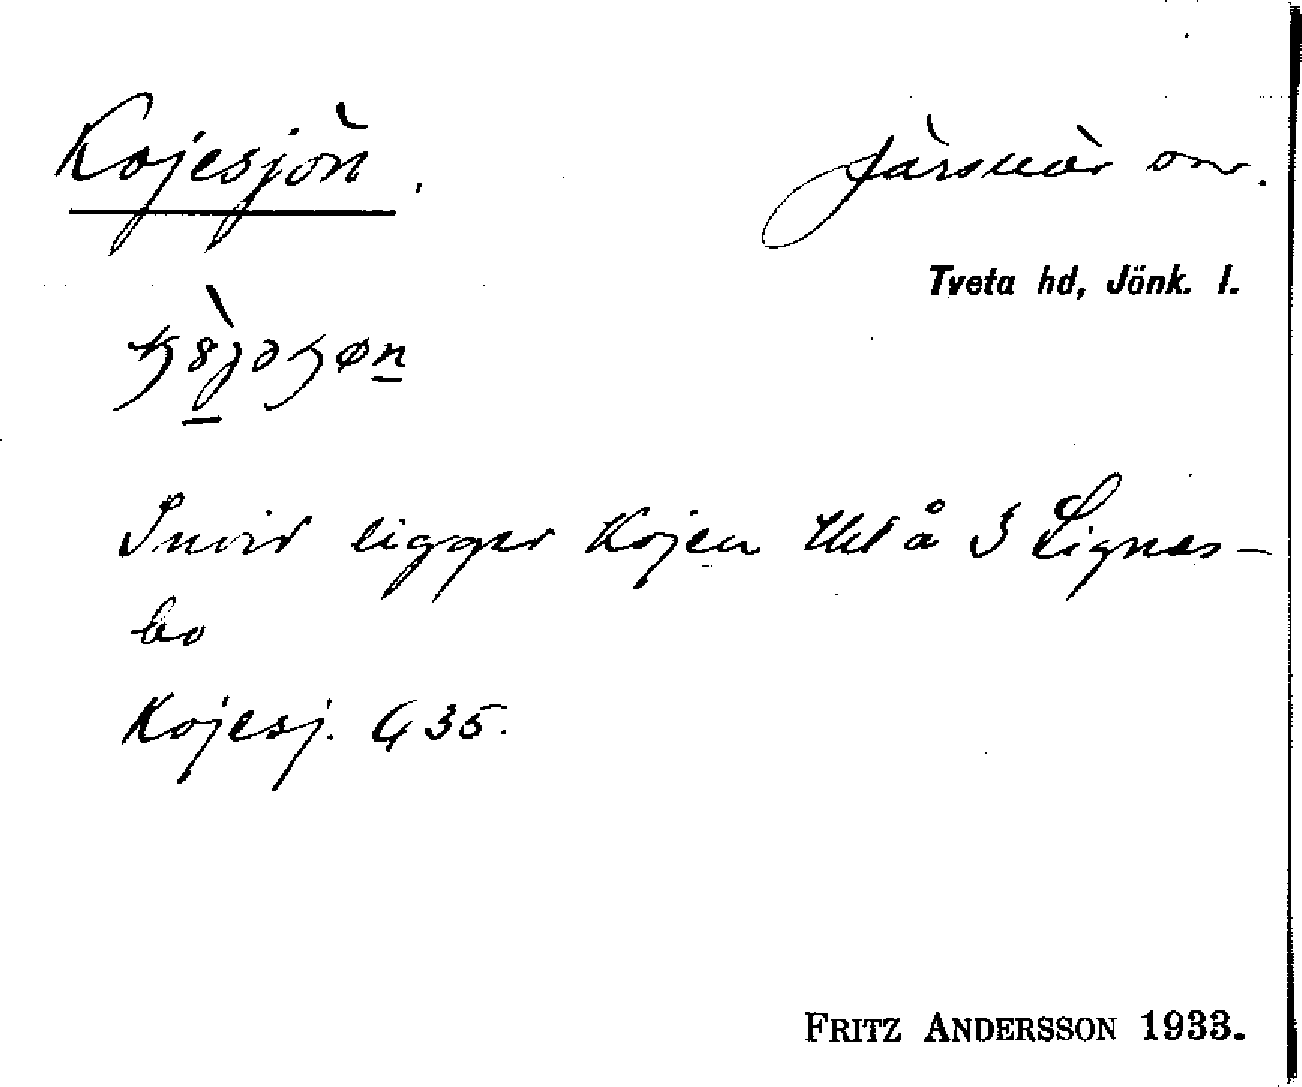 Kojesjön.
Järsnäs sn.
Tveta hd, Jönk. l.
Invid ligger Kojen tht å S Lignes-
bo
Kojesj. G 35.
FRITZ ANDERSSON 1933.